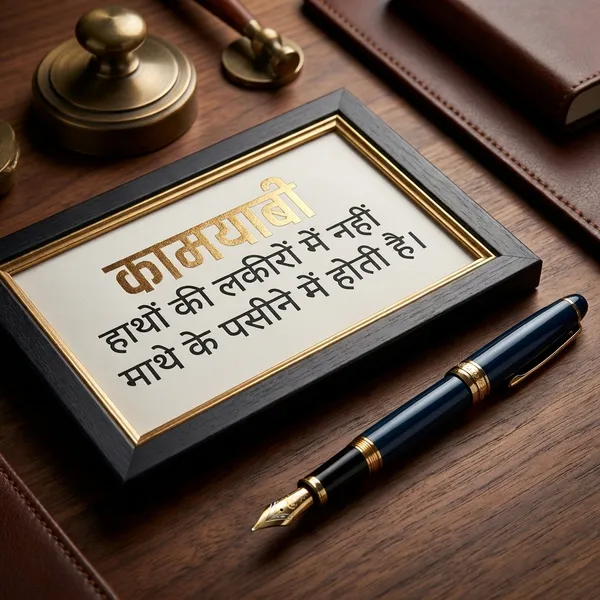 कामयाबी
हाथों की लकीरों में नहीं
माथे के पसीने में होती है।